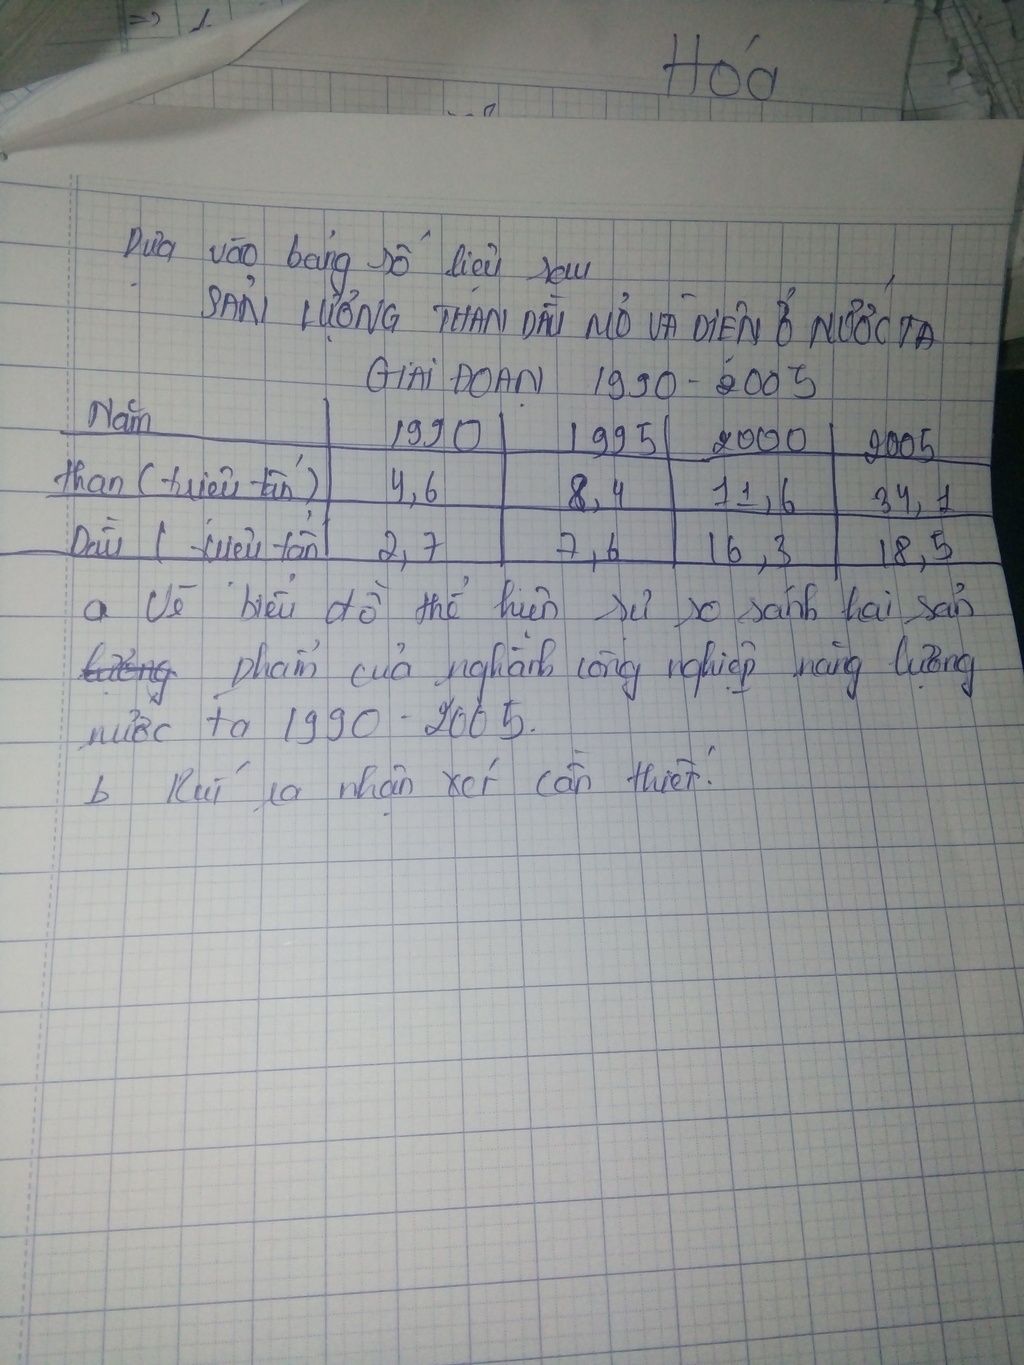 => 1.
Hóa
Dựa vào bảng số liệu sau
SẢN LƯỢNG THAN DẦU MỎ VÀ ĐIỆN Ở NƯỚC TA
GIAI ĐOẠN 1990 - 2005
Năm 1990 1995 2000 2005
than (triệu tấn) 4,6 8,4 11,6 34,1
Dầu ( triệu tấn 2,7 7,6 16,3 18,5
a Vẽ biểu đồ thể hiện sự so sánh hai sản
lượng phẩm của nghành công nghiệp năng lượng
nước ta 1990 - 2005.
b Rút ra nhận xét cần thiết.